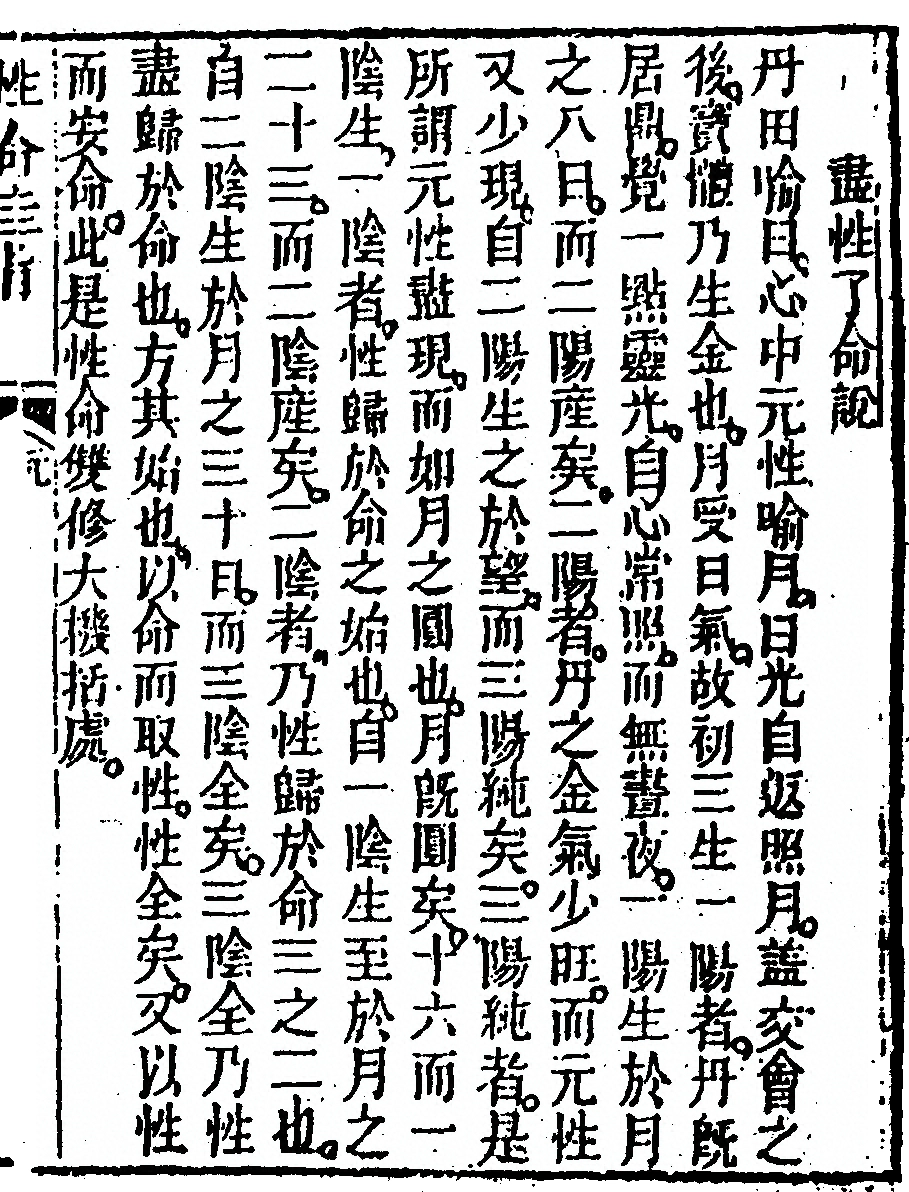 盡性了命說
丹田喻日。心中元性喻月。日光自返照月。蓋交會之
後。寳體乃生金也。月受日氣。故初三生一陽者。丹既
居鼎。覺一點靈光。自心常照。而無晝夜。一陽生於月
之八日。而二陽産矣。二陽者。丹之金氣少旺。而元性
又少現。自二陽生之於望。而三陽純矣。三陽純者。是
所謂元性盡現。而如月之圓也。月既圓矣。十六而一
陰生。一陰者。性歸於命之始也。自一陰生至於月之
二十三。而二陰産矣。二陰者。乃性歸於命三之二也。
自二陰生於月之三十日。而三陰全矣。三陰全乃性
盡歸於命也。方其始也。以命而取性。性全矣。又以性
而安命。此是性命雙修大撥括處。
性命圭旨
元